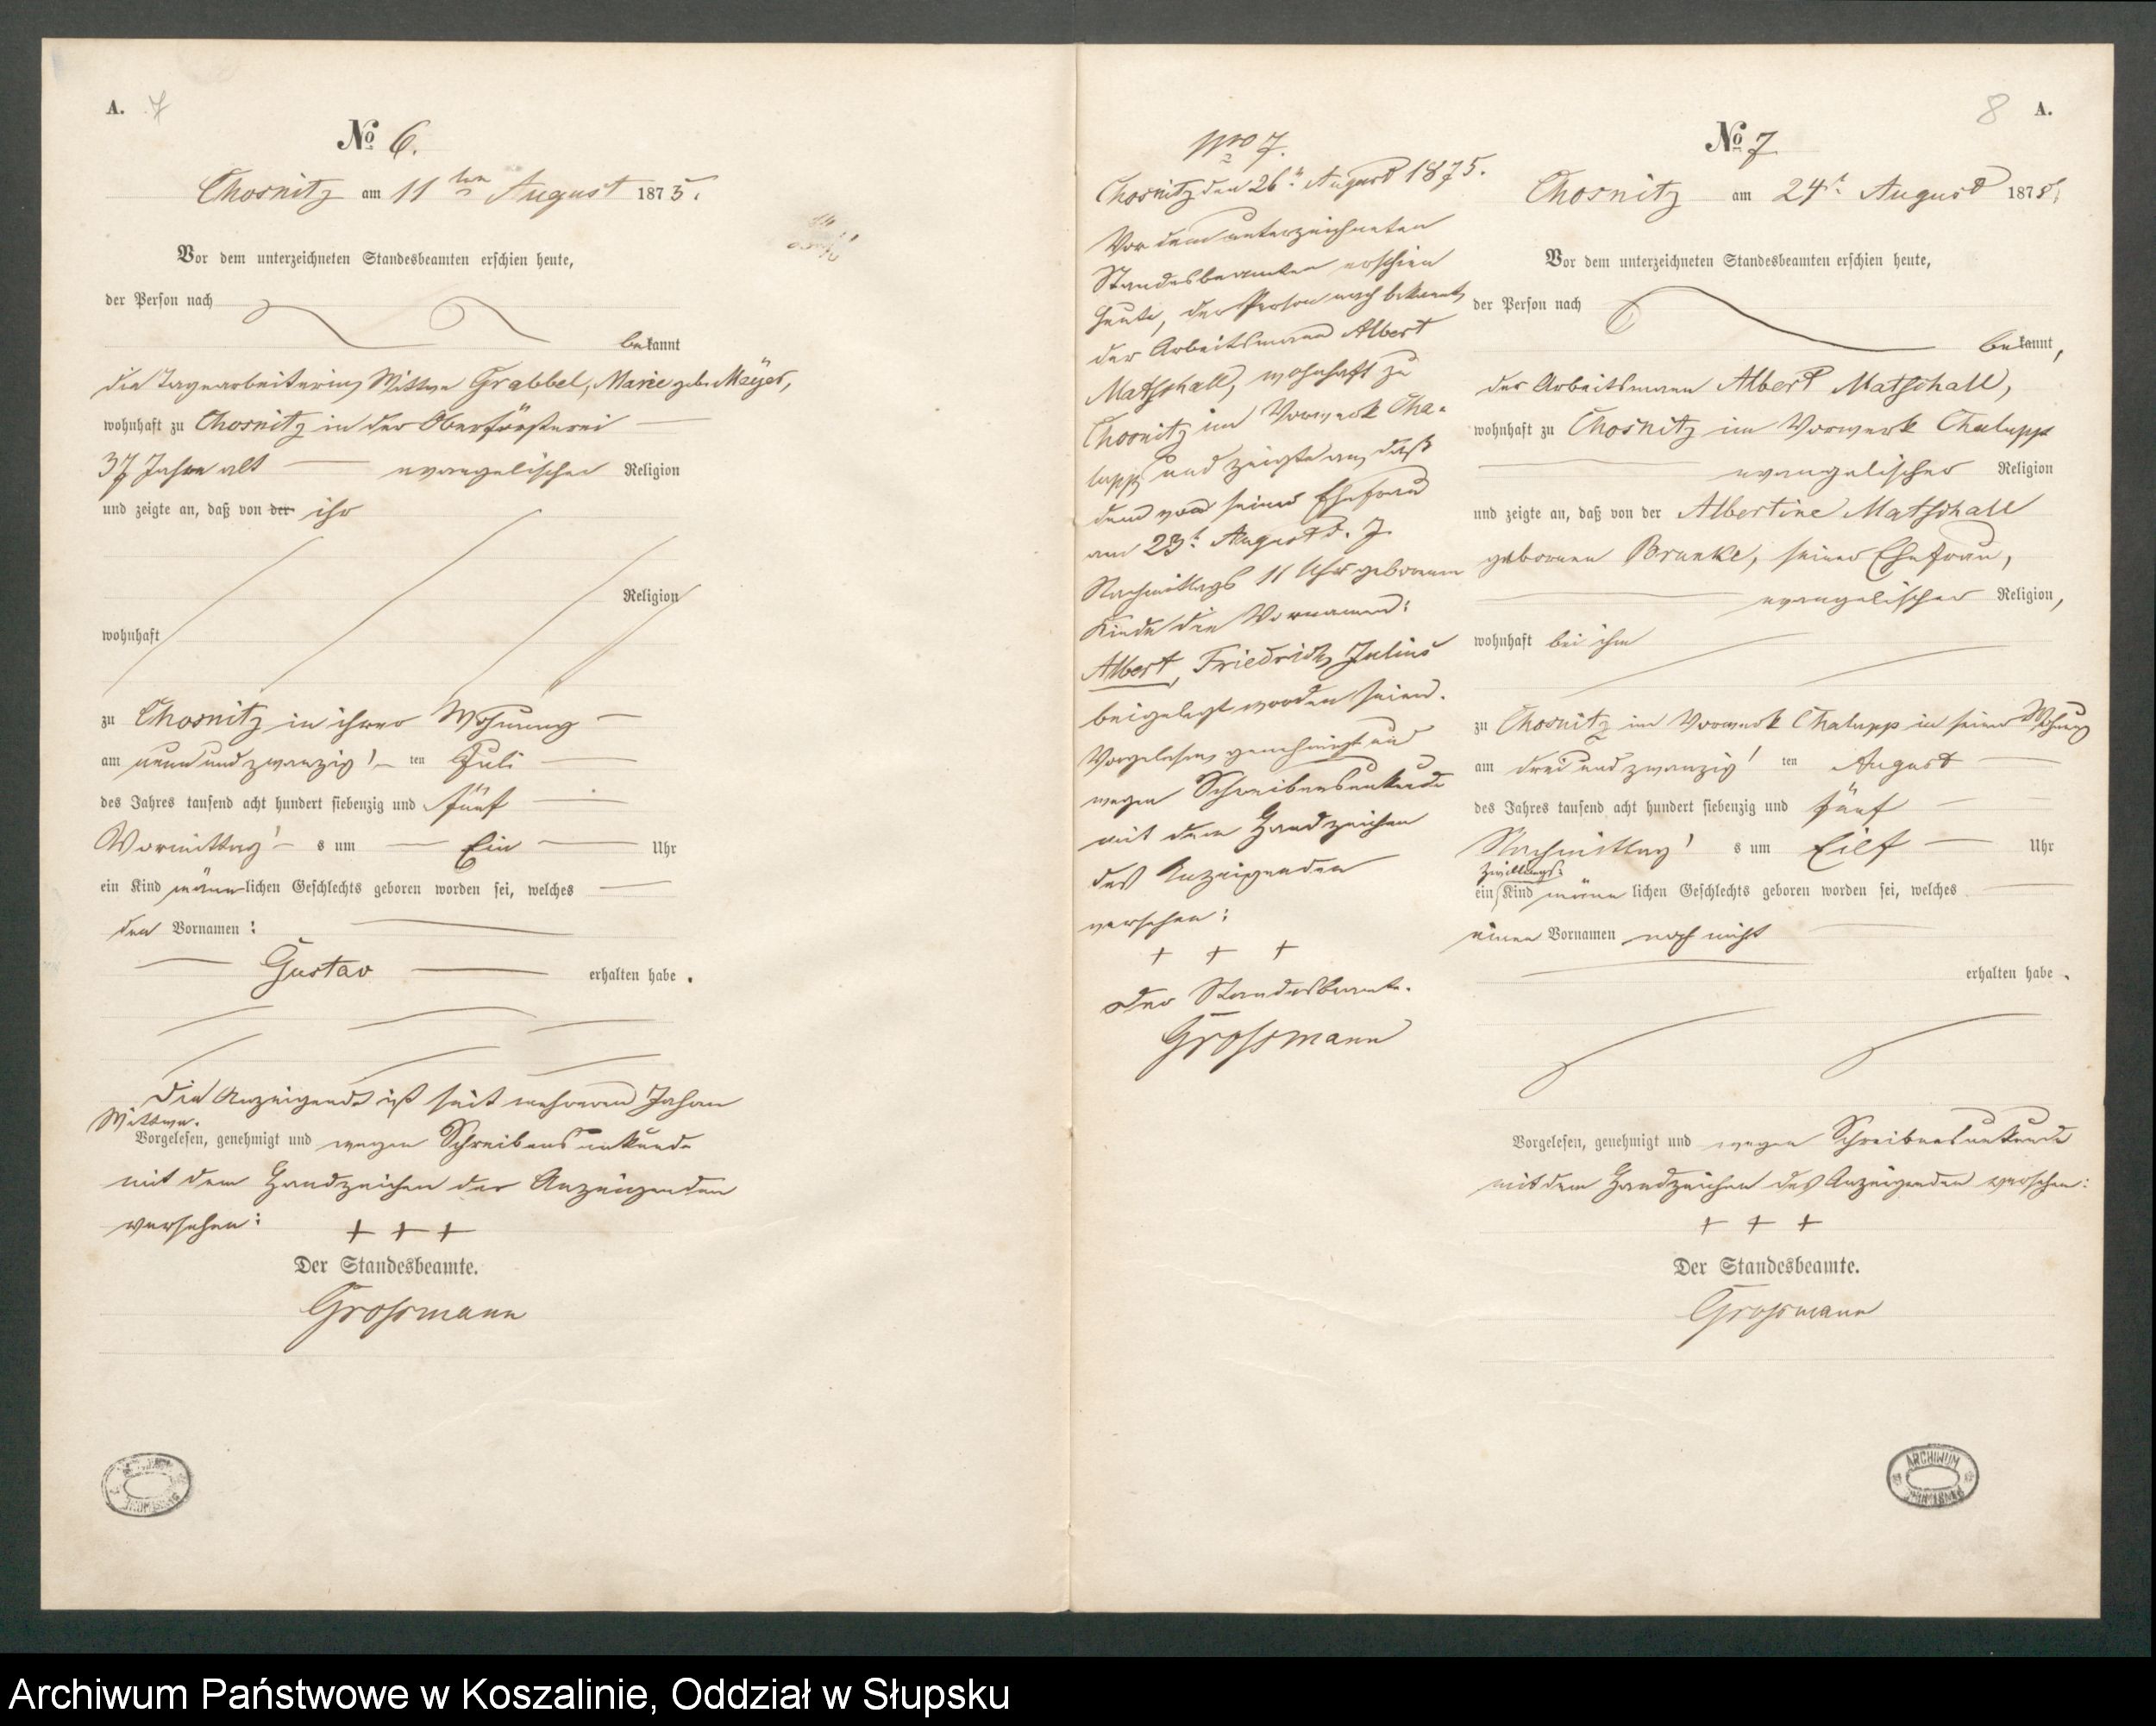 A. 7
№ 6.
Chosnitz am 11ten August 1875.
Vor dem unterzeichneten Standesbeamten erschien heute,
der Person nach
bekannt
die Tagearbeiterin, Wittwe Grabbel, Marie geb. Meyer,
wohnhaft zu Chosnitz in der Oberförsterei
37 Jahre alt evangelischer Religion
und zeigte an, daß von der ihr
Religion
wohnhaft
zu Chosnitz in ihrer Wohnung
am neun und zwanzig ten Juli
des Jahres tausend acht hundert siebenzig und fünf
Vormittag s um Ein Uhr
ein Kind männlichen Geschlechts geboren worden sei, welches
den Vornamen:
Gustav erhalten habe.
Die Anzeigende ist seit mehreren Jahren
Wittwe.
Vorgelesen, genehmigt und wegen Schreibensunkunde
mit dem Handzeichen der Anzeigenden
versehen:
+ + +
Der Standesbeamte.
Grossmann
Nro 7.
Chosnitz den 26t August 1875.
Vor dem unterzeichneten
Standesbeamten erschien
heute, der Person nach bekannt,
der Arbeitsmann Albert
Matschall, wohnhaft zu
Chosnitz im Vorwerk Cha-
lupp und zeigte an, daß
dem von seiner Ehefrau
am 23t August d. J.
Nachmittags 11 Uhr geborenen
Kinde die Vornamen:
Albert, Friedrich, Julius
beigelegt worden seien.
Vorgelesen, genehmigt und
wegen Schreibensunkunde
mit dem Handzeichen
des Anzeigenden
versehen:
+ + +
Der Standesbeamte.
Grossmann
8 A.
№ 7
Chosnitz am 24t August 1875.
Vor dem unterzeichneten Standesbeamten erschien heute,
der Person nach
bekannt,
der Arbeitsmann Albert Matschall,
wohnhaft zu Chosnitz im Vorwerk Chalupp
evangelischer Religion
und zeigte an, daß von der Albertine Matschall
geborenen Brunke, seiner Ehefrau,
evangelischer Religion,
wohnhaft bei ihm
zu Chosnitz im Vorwerk Chalupp in seiner Wohnung
am drei und zwanzig ten August
des Jahres tausend acht hundert siebenzig und fünf
Nachmittag s um Eilf Uhr
Zwillings-
ein Kind männlichen Geschlechts geboren worden sei, welches
einen Vornamen noch nicht
erhalten habe.
Vorgelesen, genehmigt und wegen Schreibensunkunde
mit dem Handzeichen des Anzeigenden versehen:
+ + +
Der Standesbeamte.
Grossmann
ARCHIWUM
Archiwum Państwowe w Koszalinie, Oddział w Słupsku